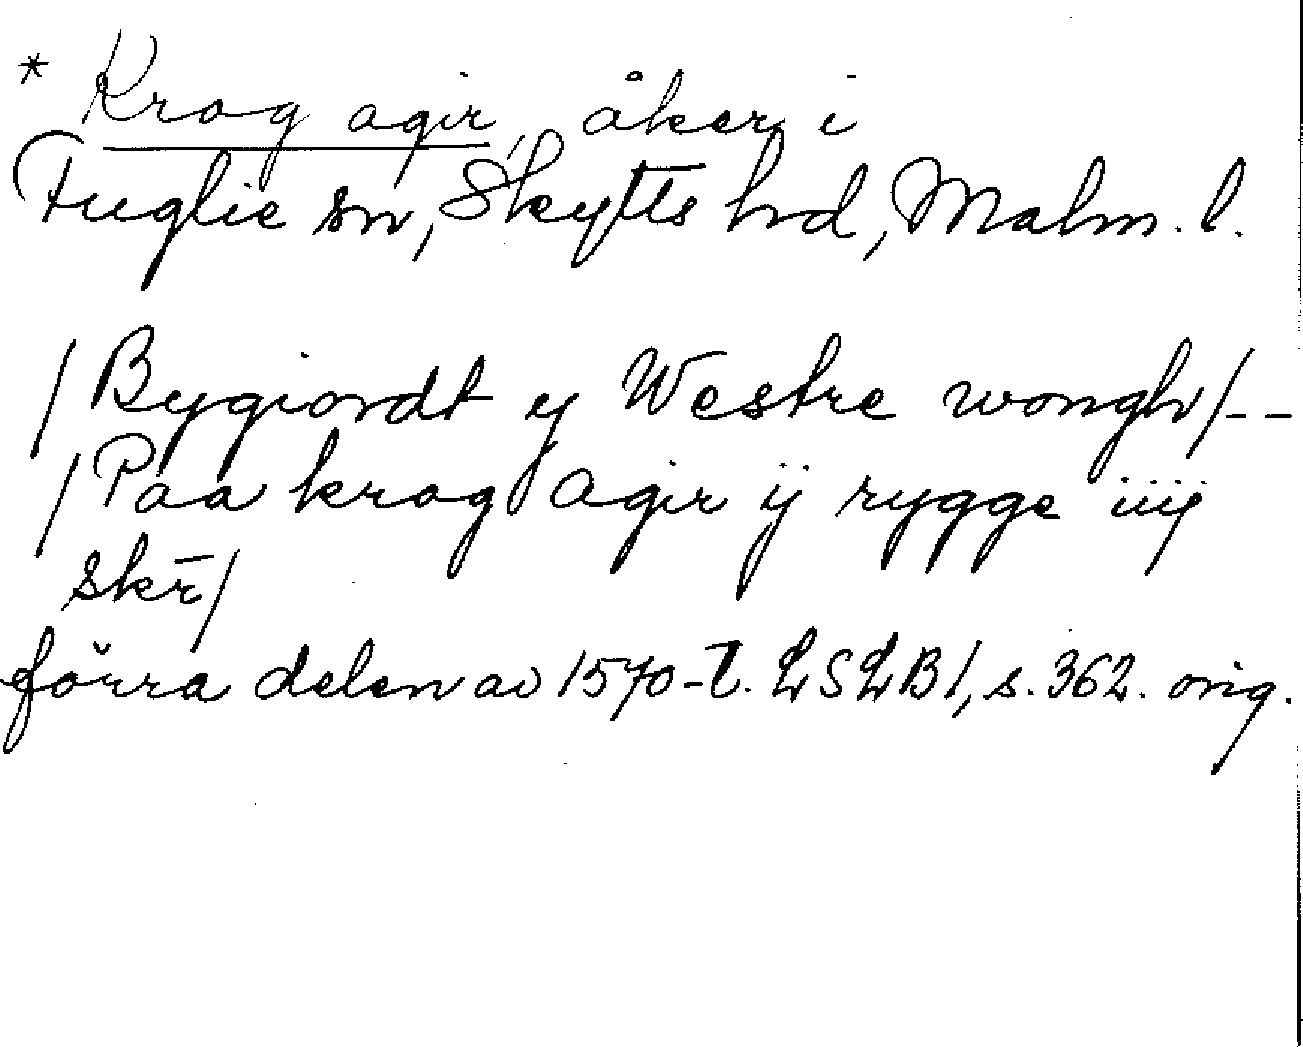 * Krog agir, åker i
Fuglie sn, Skytts hrd, Malm. l.
/Bygiordt y Westre wongh/--
/Paa krog agir ij rygge iiij
skr̄/
förra delen av 1570-t. LSLB1, s. 362. orig.